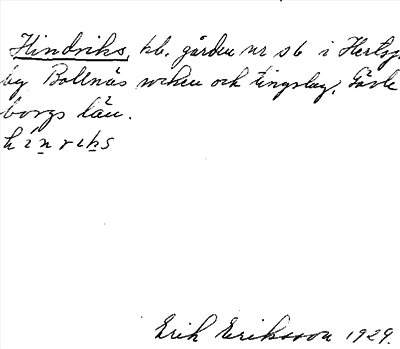 Hindriks, kb. gården nr 26 i Hertsj-
by Bollnäs socken och tingslag, Gävle
borgs län.
hinriks
Erik Eriksson 1929.